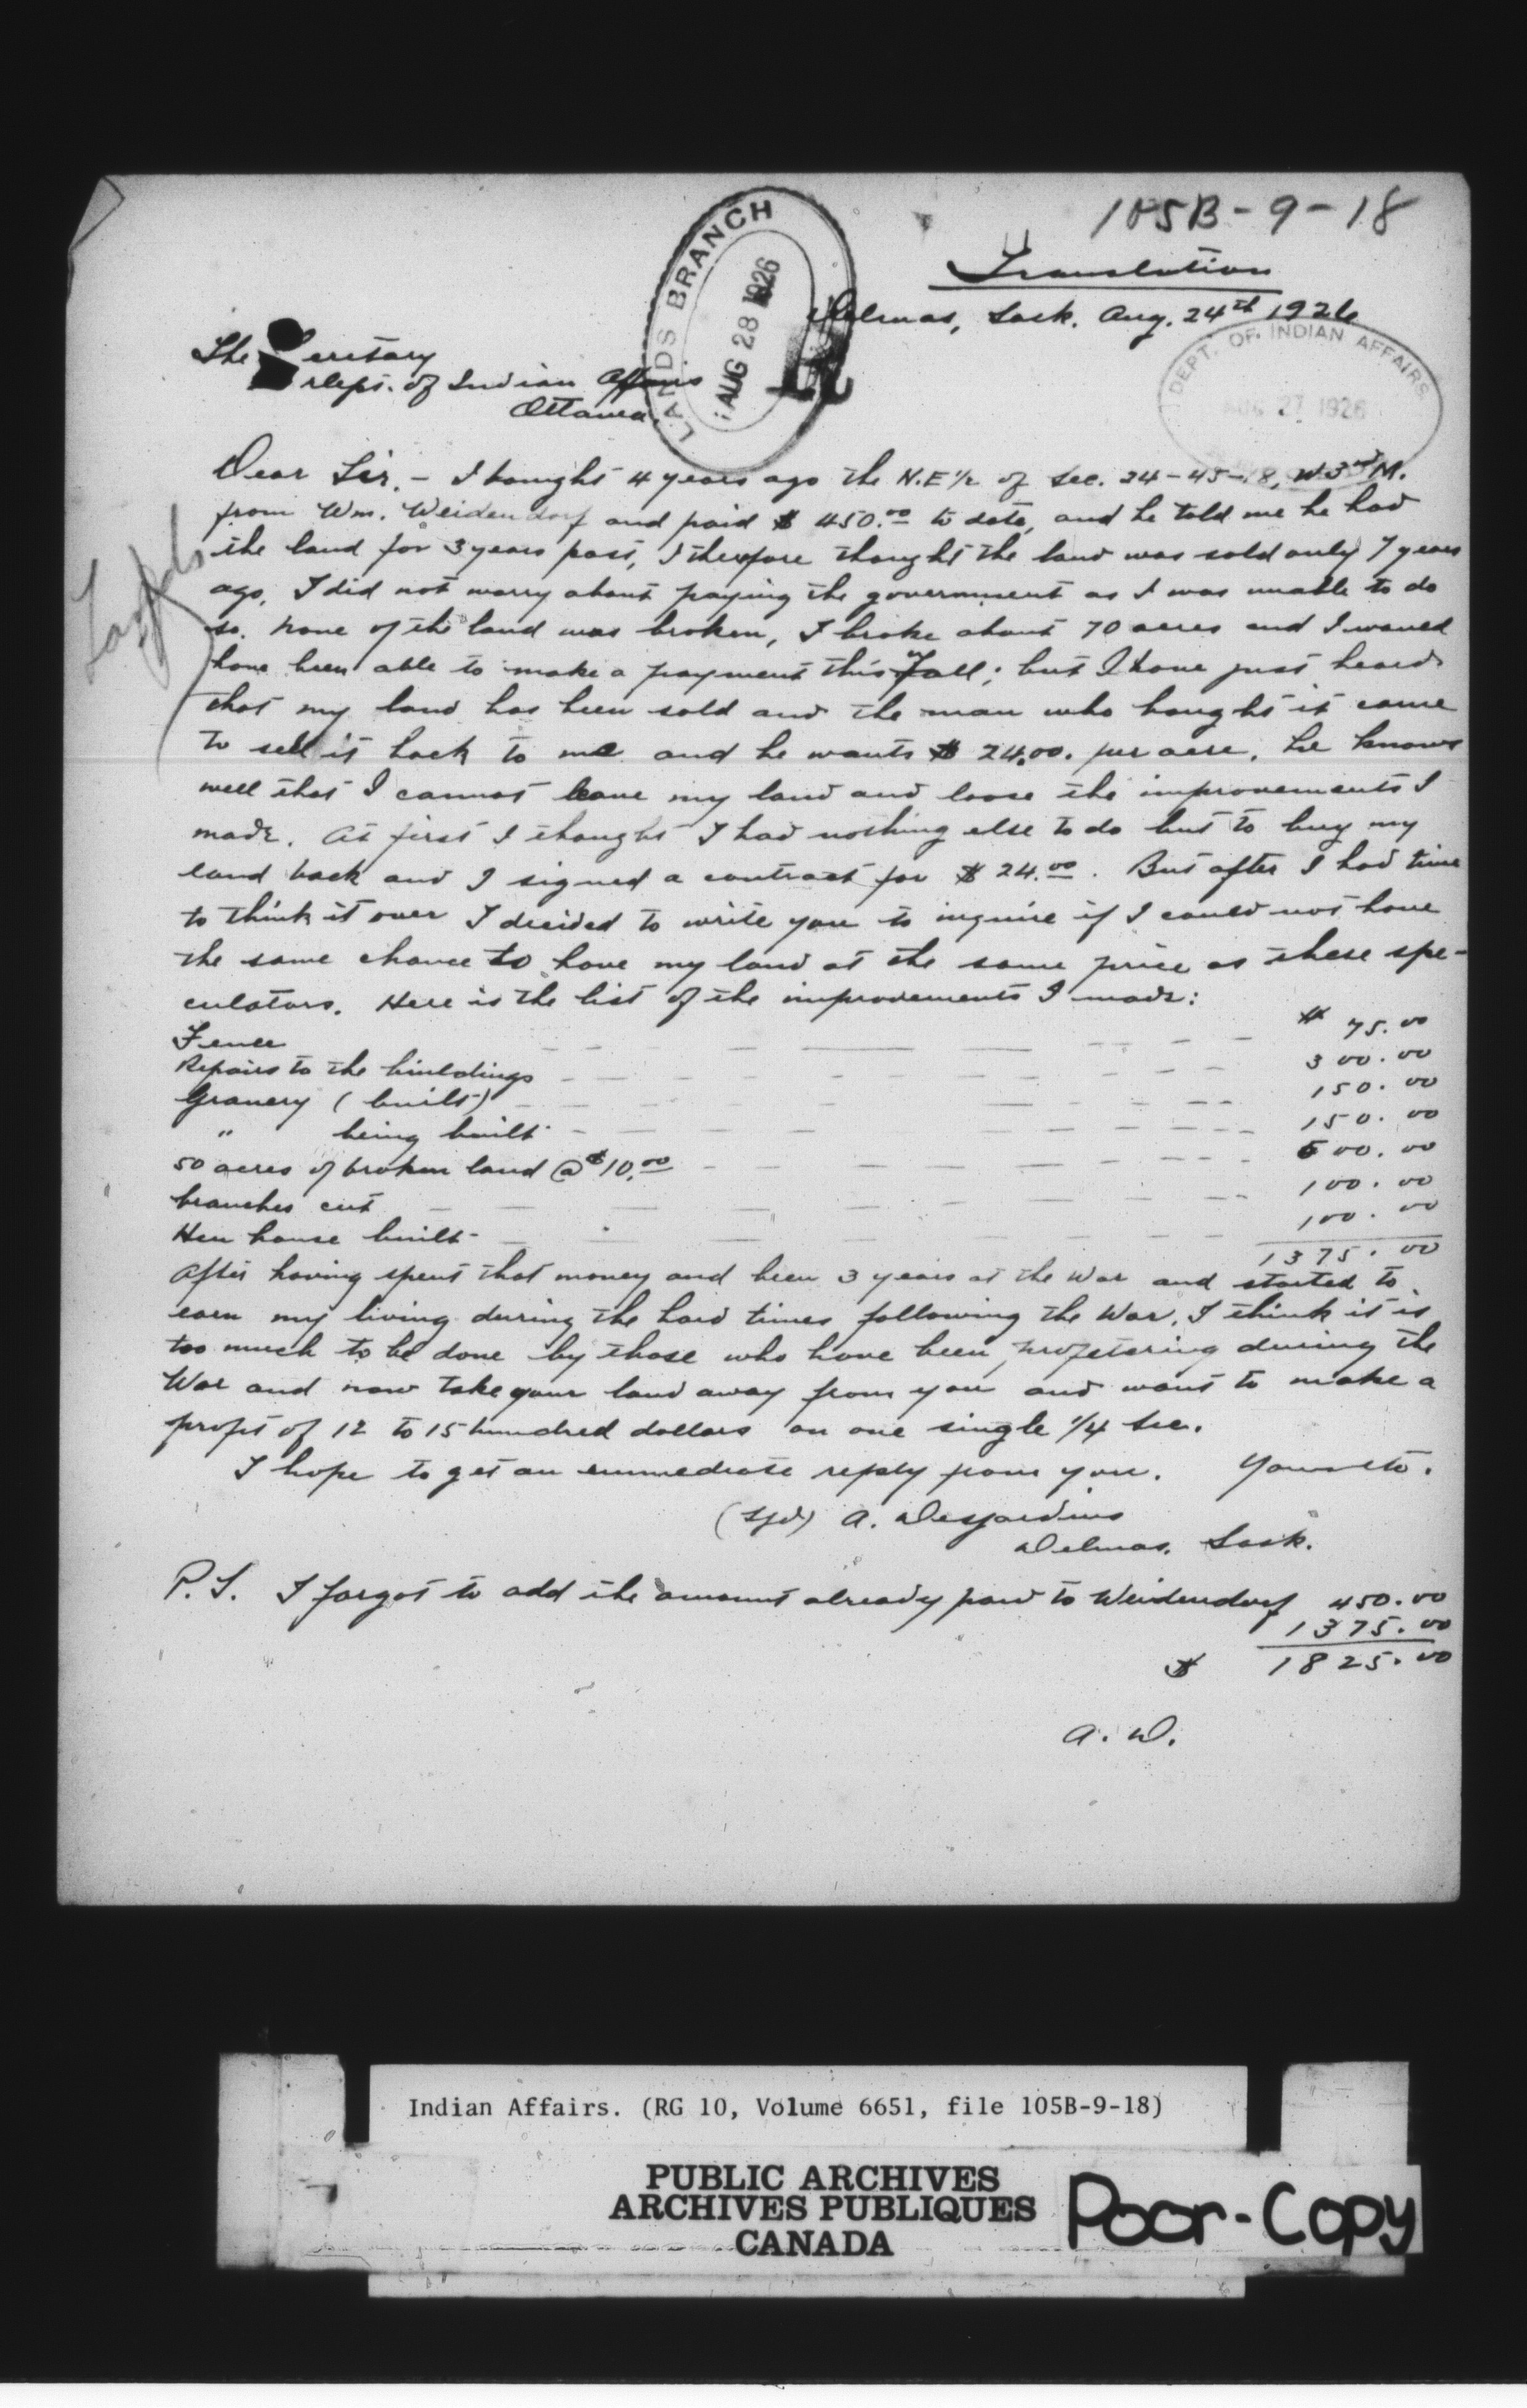 105B-9-18
Translation
Delmas, Sask. Aug. 24th 1926
LANDS BRANCH
AUG 28 1926
DEPT. OF INDIAN AFFAIRS
AUG 27 1926
The Secretary
Dept. of Indian Affairs
Ottawa
Dear Sir, - I bought 4 years ago the N.E 1/2 of Sec. 24-45-18, W3rd M.
from Wm. Weidendorf and paid $ 450.00 to date, and he told me he had
the land for 3 years past, I therefore thought the land was sold only 7 years
ago, I did not worry about paying the government as I was unable to do
so. None of the land was broken, I broke about 70 acres and I would
have been able to make a payment this Fall; but I have just heard
that my land has been sold and the man who bought it came
to sell it back to me and he wants $ 24.00. per acre. He knows
well that I cannot leave my land and loose the improvements I
made. At first I thought I had nothing else to do but to buy my
land back and I signed a contract for $ 24.00. But after I had time
to think it over I decided to write you to inquire if I could not have
the same chance to have my land at the same price as these spe-
culators. Here is the list of the improvements I made:
Fence $ 75.00
Repairs to the buildings 300.00
Granery (built) 150.00
" being built 150.00
50 acres of broken land @ $10.00 500.00
branches cut 100.00
Hen house built 100.00
1375.00
After having spent that money and been 3 years at the War and started to
earn my living during the hard times following the War, I think it is
too much to be done by those who have been profetering during the
War and now take your land away from you and want to make a
profit of 12 to 15 hundred dollars on one single 1/4 Sec.
I hope to get an immediate reply from you. Yours etc.
(Sgd) A. Desjardins
Delmas, Sask.
P.S. I forgot to add the amount already paid to Weidendorf 450.00
1375.00
$ 1825.00
A. D.
Indian Affairs. (RG 10, Volume 6651, file 105B-9-18)
PUBLIC ARCHIVES
ARCHIVES PUBLIQUES
CANADA
Poor-Copy